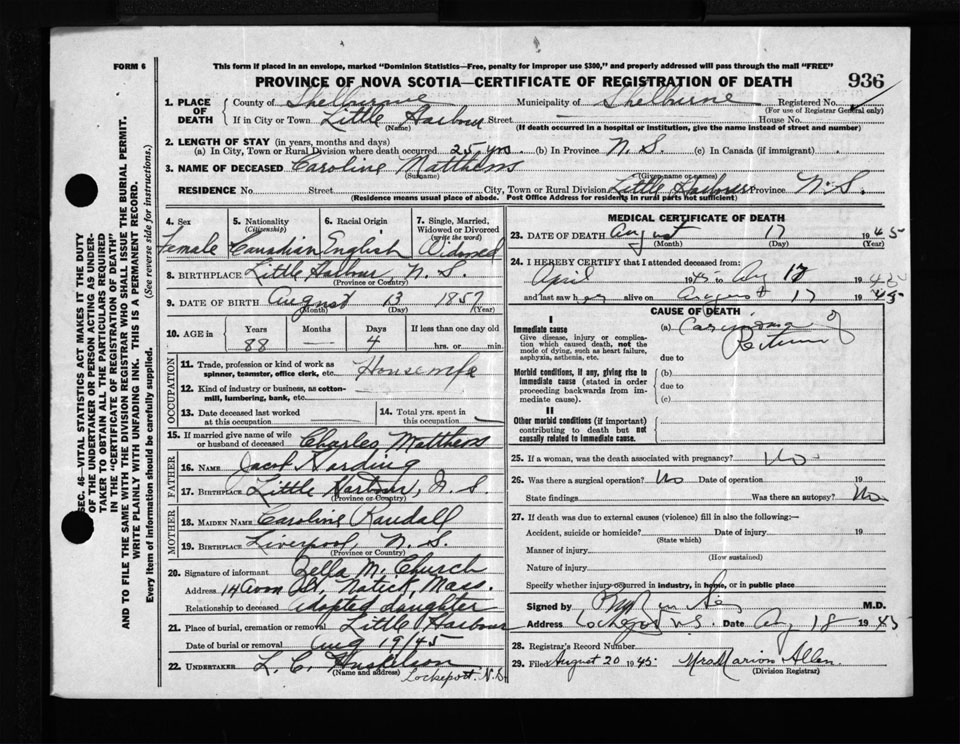 FORM 6
This form if placed in an envelope, marked "Dominion Statistics—Free, penalty for improper use $300," and properly addressed will pass through the mail "FREE"
PROVINCE OF NOVA SCOTIA—CERTIFICATE OF REGISTRATION OF DEATH
936
1. PLACE OF DEATH County of Shelburne Municipality of Shelburne Registered No. (For use of Registrar General only)
If in City or Town Little Harbour (Name) Street House No.
(If death occurred in a hospital or institution, give the name instead of street and number)
2. LENGTH OF STAY (in years, months and days)
(a) In City, Town or Rural Division where death occurred 25 yrs. (b) In Province N. S. (c) In Canada (if immigrant)
3. NAME OF DECEASED Caroline Matthews
(Surname) (Given name or names)
RESIDENCE No Street City, Town or Rural Division Little Harbour Province N. S.
(Residence means usual place of abode. Post Office Address for residents in rural parts not sufficient)
4. Sex Female
5. Nationality (Citizenship) Canadian
6. Racial Origin English
7. Single, Married, Widowed or Divorced (write the word) Widowed
8. BIRTHPLACE Little Harbour, N. S.
(Province or Country)
9. DATE OF BIRTH August 13 1857
(Month) (Day) (Year)
10. AGE in Years Months Days If less than one day old
88 — 4 hrs. or min.
OCCUPATION
11. Trade, profession or kind of work as spinner, teamster, office clerk, etc. Housewife
12. Kind of industry or business, as cotton-mill, lumbering, bank, etc.
13. Date deceased last worked at this occupation
14. Total yrs. spent in this occupation
15. If married give name of wife or husband of deceased Charles Matthews
FATHER
16. NAME Jacob Harding
17. BIRTHPLACE Little Harbour, N. S.
(Province or Country)
MOTHER
18. MAIDEN NAME Caroline Randall
19. BIRTHPLACE Liverpool, N. S.
(Province or Country)
20. Signature of informant Zella M. Church
Address 14 Avon St, Natick, Mass.
Relationship to deceased adopted daughter
21. Place of burial, cremation or removal Little Harbour
Date of burial or removal Aug 19/45
22. UNDERTAKER L. C.
(Name and address) Lockeport. N.S
MEDICAL CERTIFICATE OF DEATH
23. DATE OF DEATH August 17 1945
(Month) (Day) (Year)
24. I HEREBY CERTIFY that I attended deceased from:
April 1945 to Aug 17 1945
and last saw her alive on August 17 1945
CAUSE OF DEATH
I
Immediate cause
Give disease, injury or complication which caused death, not the mode of dying, such as heart failure, asphyxia, asthenia, etc.
(a) Carcinoma of Rectum
due to
Morbid conditions, if any, giving rise to immediate cause (stated in order proceeding backwards from immediate cause).
(b)
due to
(c)
II
Other morbid conditions (if important) contributing to death but not causally related to immediate cause.
25. If a woman, was the death associated with pregnancy? No
26. Was there a surgical operation? No Date of operation 19
State findings Was there an autopsy? No
27. If death was due to external causes (violence) fill in also the following:—
Accident, suicide or homicide? Date of injury 19
(State which)
Manner of injury
(How sustained)
Nature of injury
Specify whether injury occurred in industry, in home, or in public place
Signed by M.D.
Address Lockeport N.S. Date Aug 18 1945
28. Registrar's Record Number
29. Filed August 20 1945. Mrs Marion Allen.
(Division Registrar)
SEC. 46—VITAL STATISTICS ACT MAKES IT THE DUTY
OF THE UNDERTAKER OR PERSON ACTING AS UNDER-
TAKER TO OBTAIN ALL THE PARTICULARS REQUIRED
IN THE "CERTIFICATE OF REGISTRATION OF DEATH"
AND TO FILE THE SAME WITH THE DIVISION REGISTRAR WHO SHALL ISSUE THE BURIAL PERMIT.
WRITE PLAINLY WITH UNFADING INK. THIS IS A PERMANENT RECORD.
Every item of information should be carefully supplied. (See reverse side for instructions.)